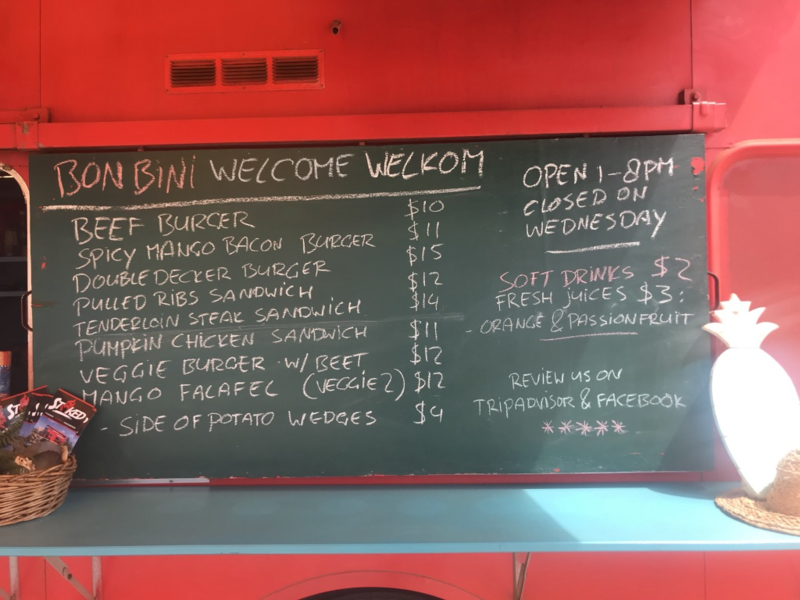 BON BINI WELCOME WELKOM
BEEF BURGER $10
SPICY MANGO BACON BURGER $11
DOUBLE DECKER BURGER $15
PULLED RIBS SANDWICH $12
TENDERLOIN STEAK SANDWICH $14
PUMPKIN CHICKEN SANDWICH $11
VEGGIE BURGER W/ BEET $12
MANGO FALAFEL (VEGGIE 2) $12
- SIDE OF POTATO WEDGES $4
OPEN 1-8PM
CLOSED ON
WEDNESDAY
SOFT DRINKS $2
FRESH JUICES $3:
- ORANGE & PASSIONFRUIT
REVIEW US ON
TRIPADVISOR & FACEBOOK
*****